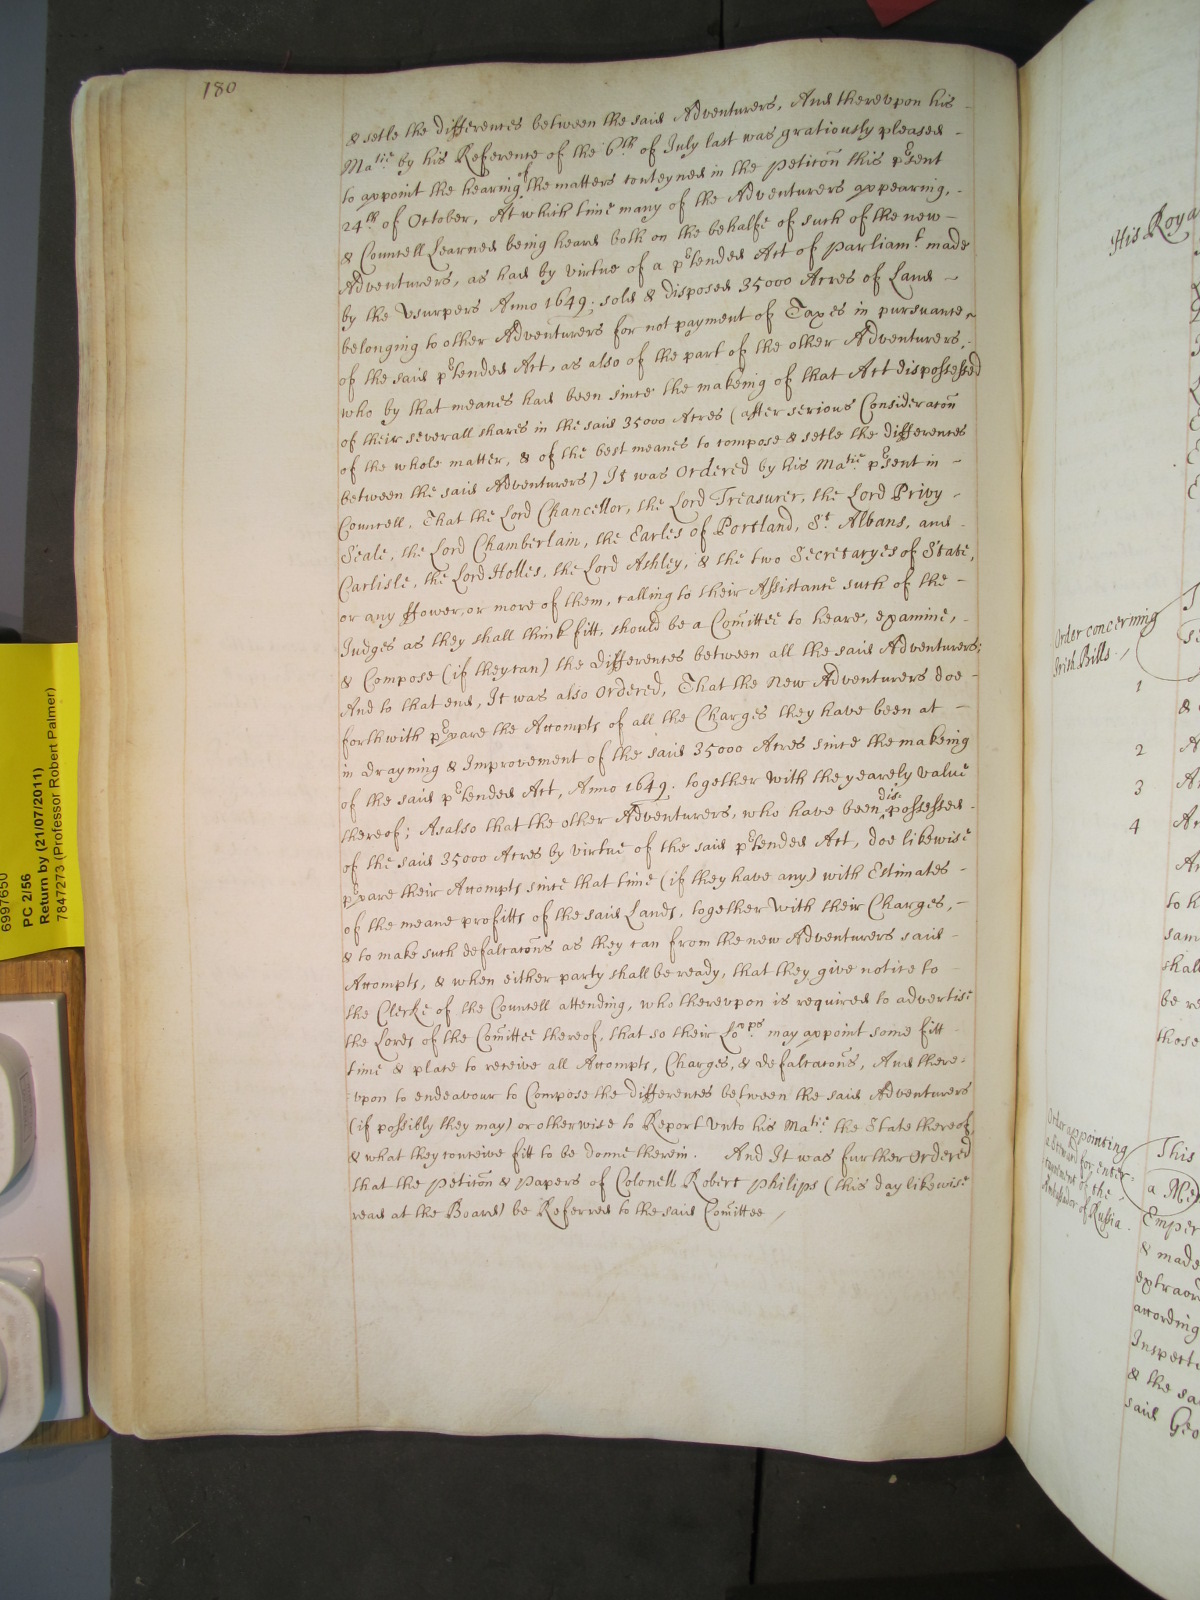 180
& setle the differences between the said Adventurers, And therevpon his
Ma^tie by his Reference of the 6^th of July last was gratiously pleased
to appoint the hearing ^of the matters conteyned in the Peticõn this p^rsent
24^th of October, At which time many of the Adventurers appearing,
& Councell Learned being heard both on the behalfe of such of the new
Adventurers, as had by virtue of a p^rtended Act of Parliam^t made
by the Vsurpers Anno 1649; sold & disposed 35000 Acres of Land
belonging to other Adventurers for not payment of Taxes in pursuance
of the said p^rtended Act, as also of the part of the other Adventurers,
who by that meanes had been since the makeing of that Act dispossessed
of their severall shares in the said 35000 Acres (after serious Consideracõn
of the whole matter, & of the best meanes to compose & setle the differences
between the said Adventurers) It was Ordered by his Ma^tie p^rsent in
Councell, That the Lord Chancellor, the Lord Treasurer, the Lord Privy
Seale, the Lord Chamberlain, the Earles of Portland, S^t Albans, and
Carlisle, the Lord Holles, the Lord Ashley, & the two Secretaryes of State,
or any ffower, or more of them, calling to their Assistance such of the
Judges as they shall think fitt, should be a Com̃ittee to heare, examine,
& Compose (if they can) the differences between all the said Adventurers;
And to that end, It was also Ordered, That the New Adventurers doe
forthwith p^rpare the Accompts of all the Charges they have been at
in drayning & Improvement of the said 35000 Acres since the makeing
of the said p^rtended Act, Anno 1649. together with the yearely value
thereof; As also that the other Adventurers, who have been ^dis possessed
of the said 35000 Acres by virtue of the said p^rtended Act, doe likewise
p^rpare their Accompts since that time (if they have any) with Estimates
of the meane profitts of the said Lands, together with their Charges,
& to make such defalcacõns as they can from the new Adventurers said
Accompts, & when either party shall be ready, that they give notice to
the Clerke of the Councell attending, who therevpon is required to advertise
the Lords of the Com̃ittee thereof, that so their Lo^pps may appoint some fitt
time & place to receive all Accompts, Charges, & defalcacõns, And there-
vpon to endeavour to Compose the differences between the said Adventurers
(if possibly they may) or otherwise to Report vnto his Ma^tie the State thereof,
& what they conceive fitt to be donne therein. And It was further Ordered
that the Peticõn & Papers of Colonell Robert Philips (this day likewise
read at the Board) be Referred to the said Com̃ittee
6997650
PC 2/56
Return by (21/07/2011)
7847273 (Professor Robert Palmer)
His Roya
Order concerning
Irish Bills.
1
2
3
4
to h
sam
shall
be re
those
Order appointing
a Steward for enter-
tainment of the
Ambassador of Russia.
This
a Me
Emper
& made
extraor
according
Inspect
& the sa
said Geo